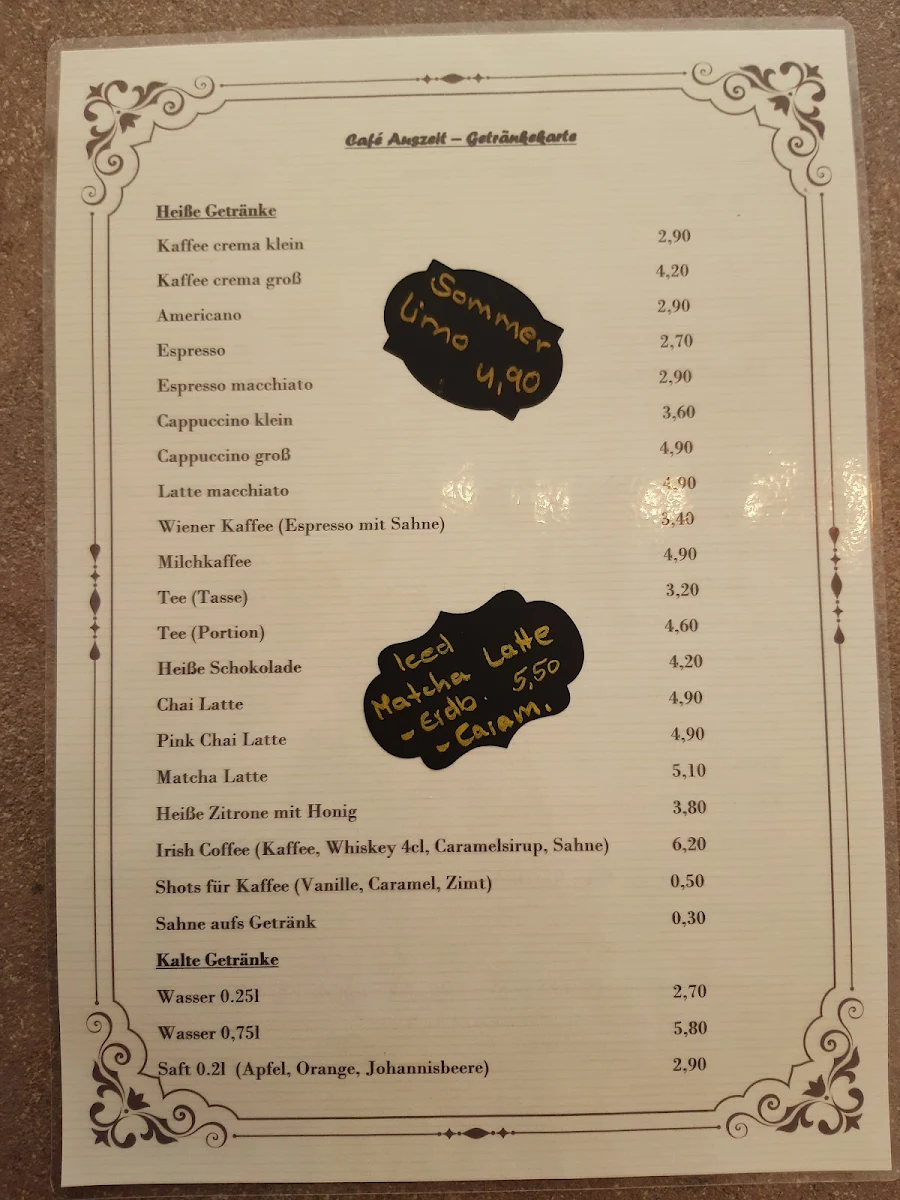 Café Auszeit – Getränkekarte
Heiße Getränke
Kaffee crema klein 2,90
Kaffee crema groß 4,20
Americano 2,90
Espresso 2,70
Espresso macchiato 2,90
Cappuccino klein 3,60
Cappuccino groß 4,90
Latte macchiato 4,90
Wiener Kaffee (Espresso mit Sahne) 3,40
Milchkaffee 4,90
Tee (Tasse) 3,20
Tee (Portion) 4,60
Heiße Schokolade 4,20
Chai Latte 4,90
Pink Chai Latte 4,90
Matcha Latte 5,10
Heiße Zitrone mit Honig 3,80
Irish Coffee (Kaffee, Whiskey 4cl, Caramelsirup, Sahne) 6,20
Shots für Kaffee (Vanille, Caramel, Zimt) 0,50
Sahne aufs Getränk 0,30
Kalte Getränke
Wasser 0.25l 2,70
Wasser 0,75l 5,80
Saft 0.2l (Apfel, Orange, Johannisbeere) 2,90
Sommer
Limo 4,90
Iced
Matcha Latte
- Erdb. 5,50
- Caram.